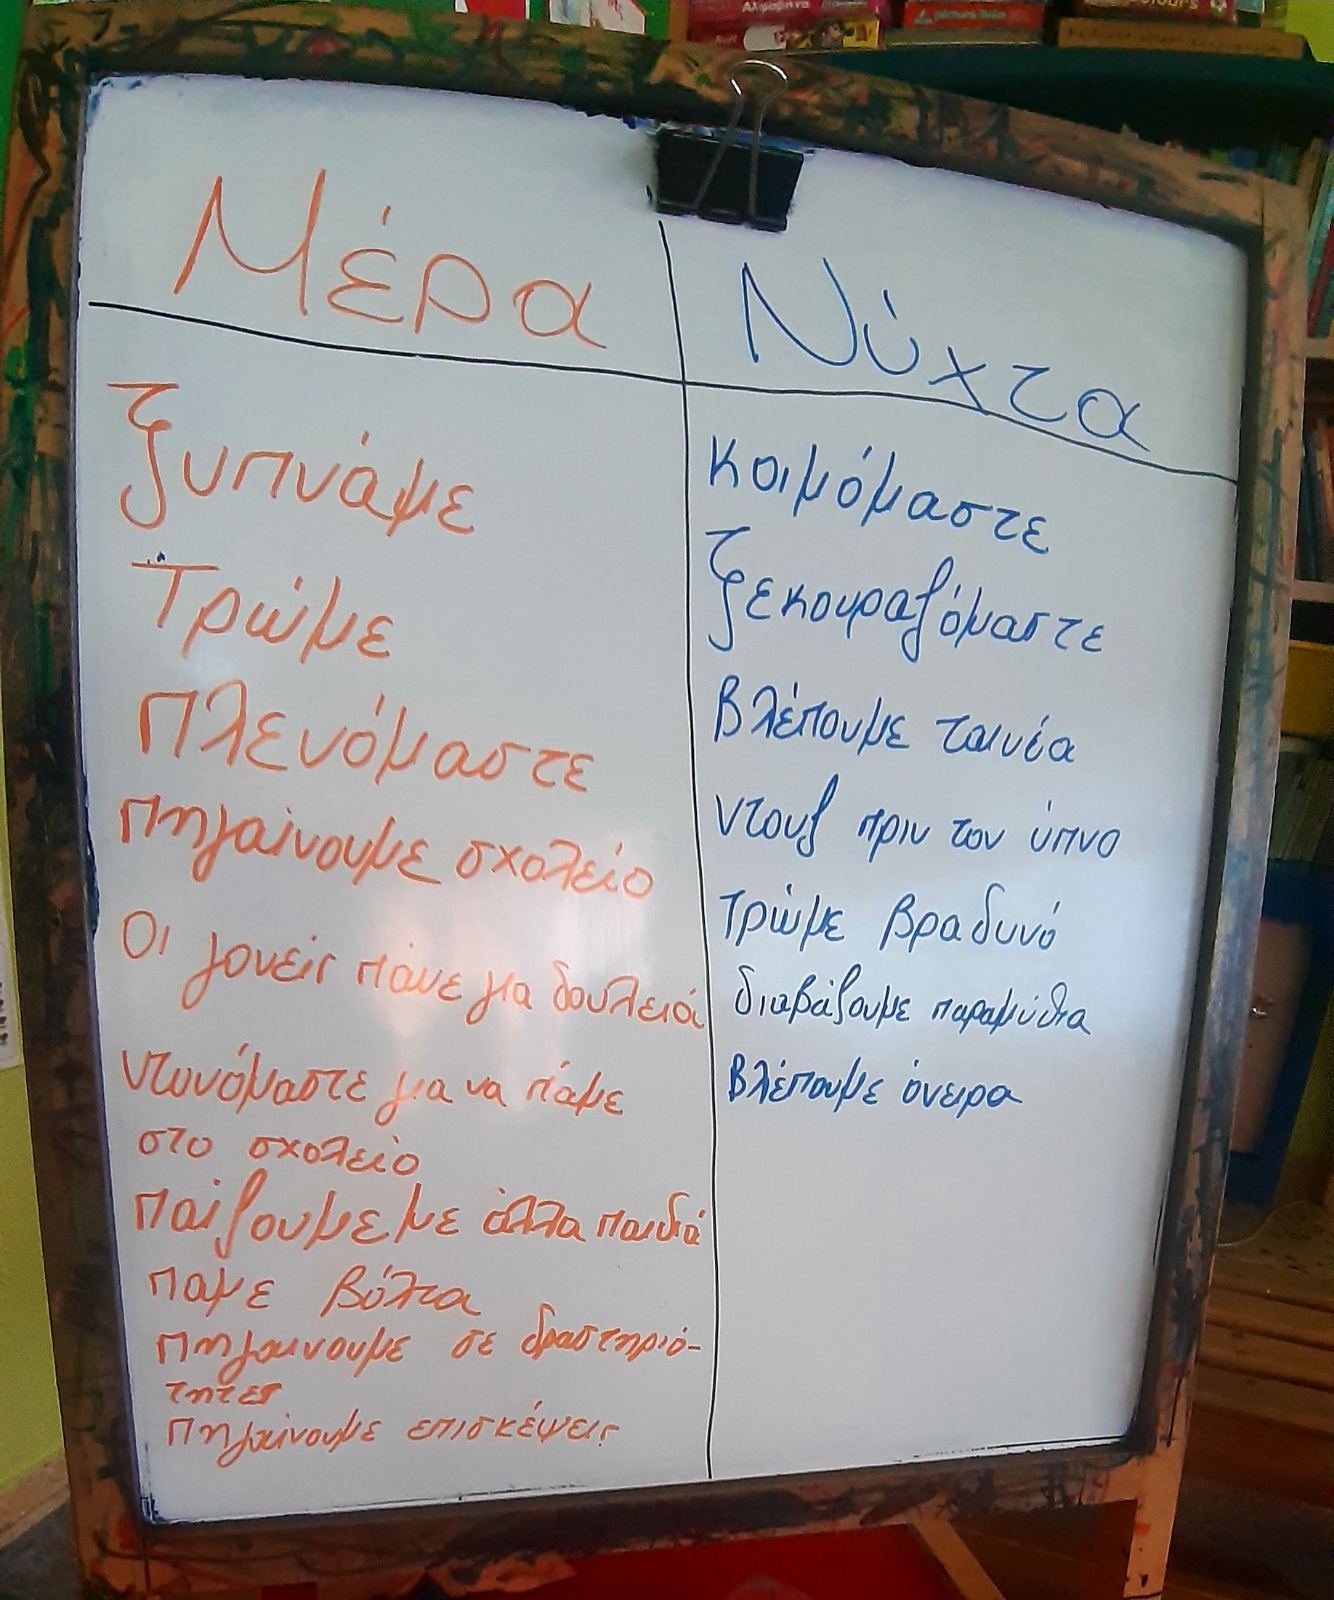 Αλφαβήτα
picture links
colours
Μέρα
Ξυπνάμε
Τρώμε
Πλενόμαστε
Πηγαίνουμε σχολείο
Οι γονείς πάνε για δουλειά
Ντυνόμαστε για να πάμε
στο σχολείο
Παίζουμε με άλλα παιδιά
Παμε βόλτα
Πηγαινουμε σε δραστηριό-
τητες
Πηγαίνουμε επισκέψεις
Νύχτα
Κοιμόμαστε
Ξεκουραζόμαστε
Βλέπουμε ταινία
Ντουζ πριν τον ύπνο
Τρώμε βραδυνό
διαβάζουμε παραμύθια
Βλέπουμε όνειρα